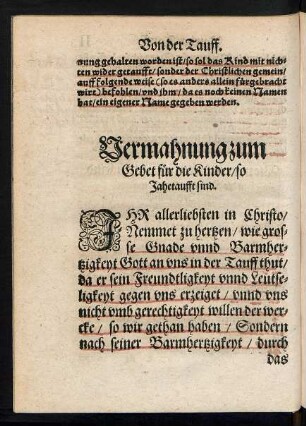 Von der Tauff.
nung gehalten worden ist/ so sol das Kind mit nich-
ten wider getaufft/ sonder der Christlichen gemein/
auff folgende weise (so es anders allein fürgebracht
wirt) befohlen/ vnd jhm/ da es noch keinen Namen
hat/ ein eigener Name gegeben werden.
Vermahnung zum
Gebet für die Kinder/ so
Jahetaufft sind.
IHR allerliebsten in Christo/
Nemmet zu hertzen/ wie gros-
se Gnade vnnd Barmher-
tzigkeyt Gott an vns in der Tauff thut/
da er sein Freundtligkeyt vnnd Leutse-
ligkeyt gegen vns erzeiget/ vnnd vns
nicht vmb gerechtigkeyt willen der wer-
cke/ so wir gethan haben/ Sondern
nach seiner Barmhertzigkeyt/ durch
das